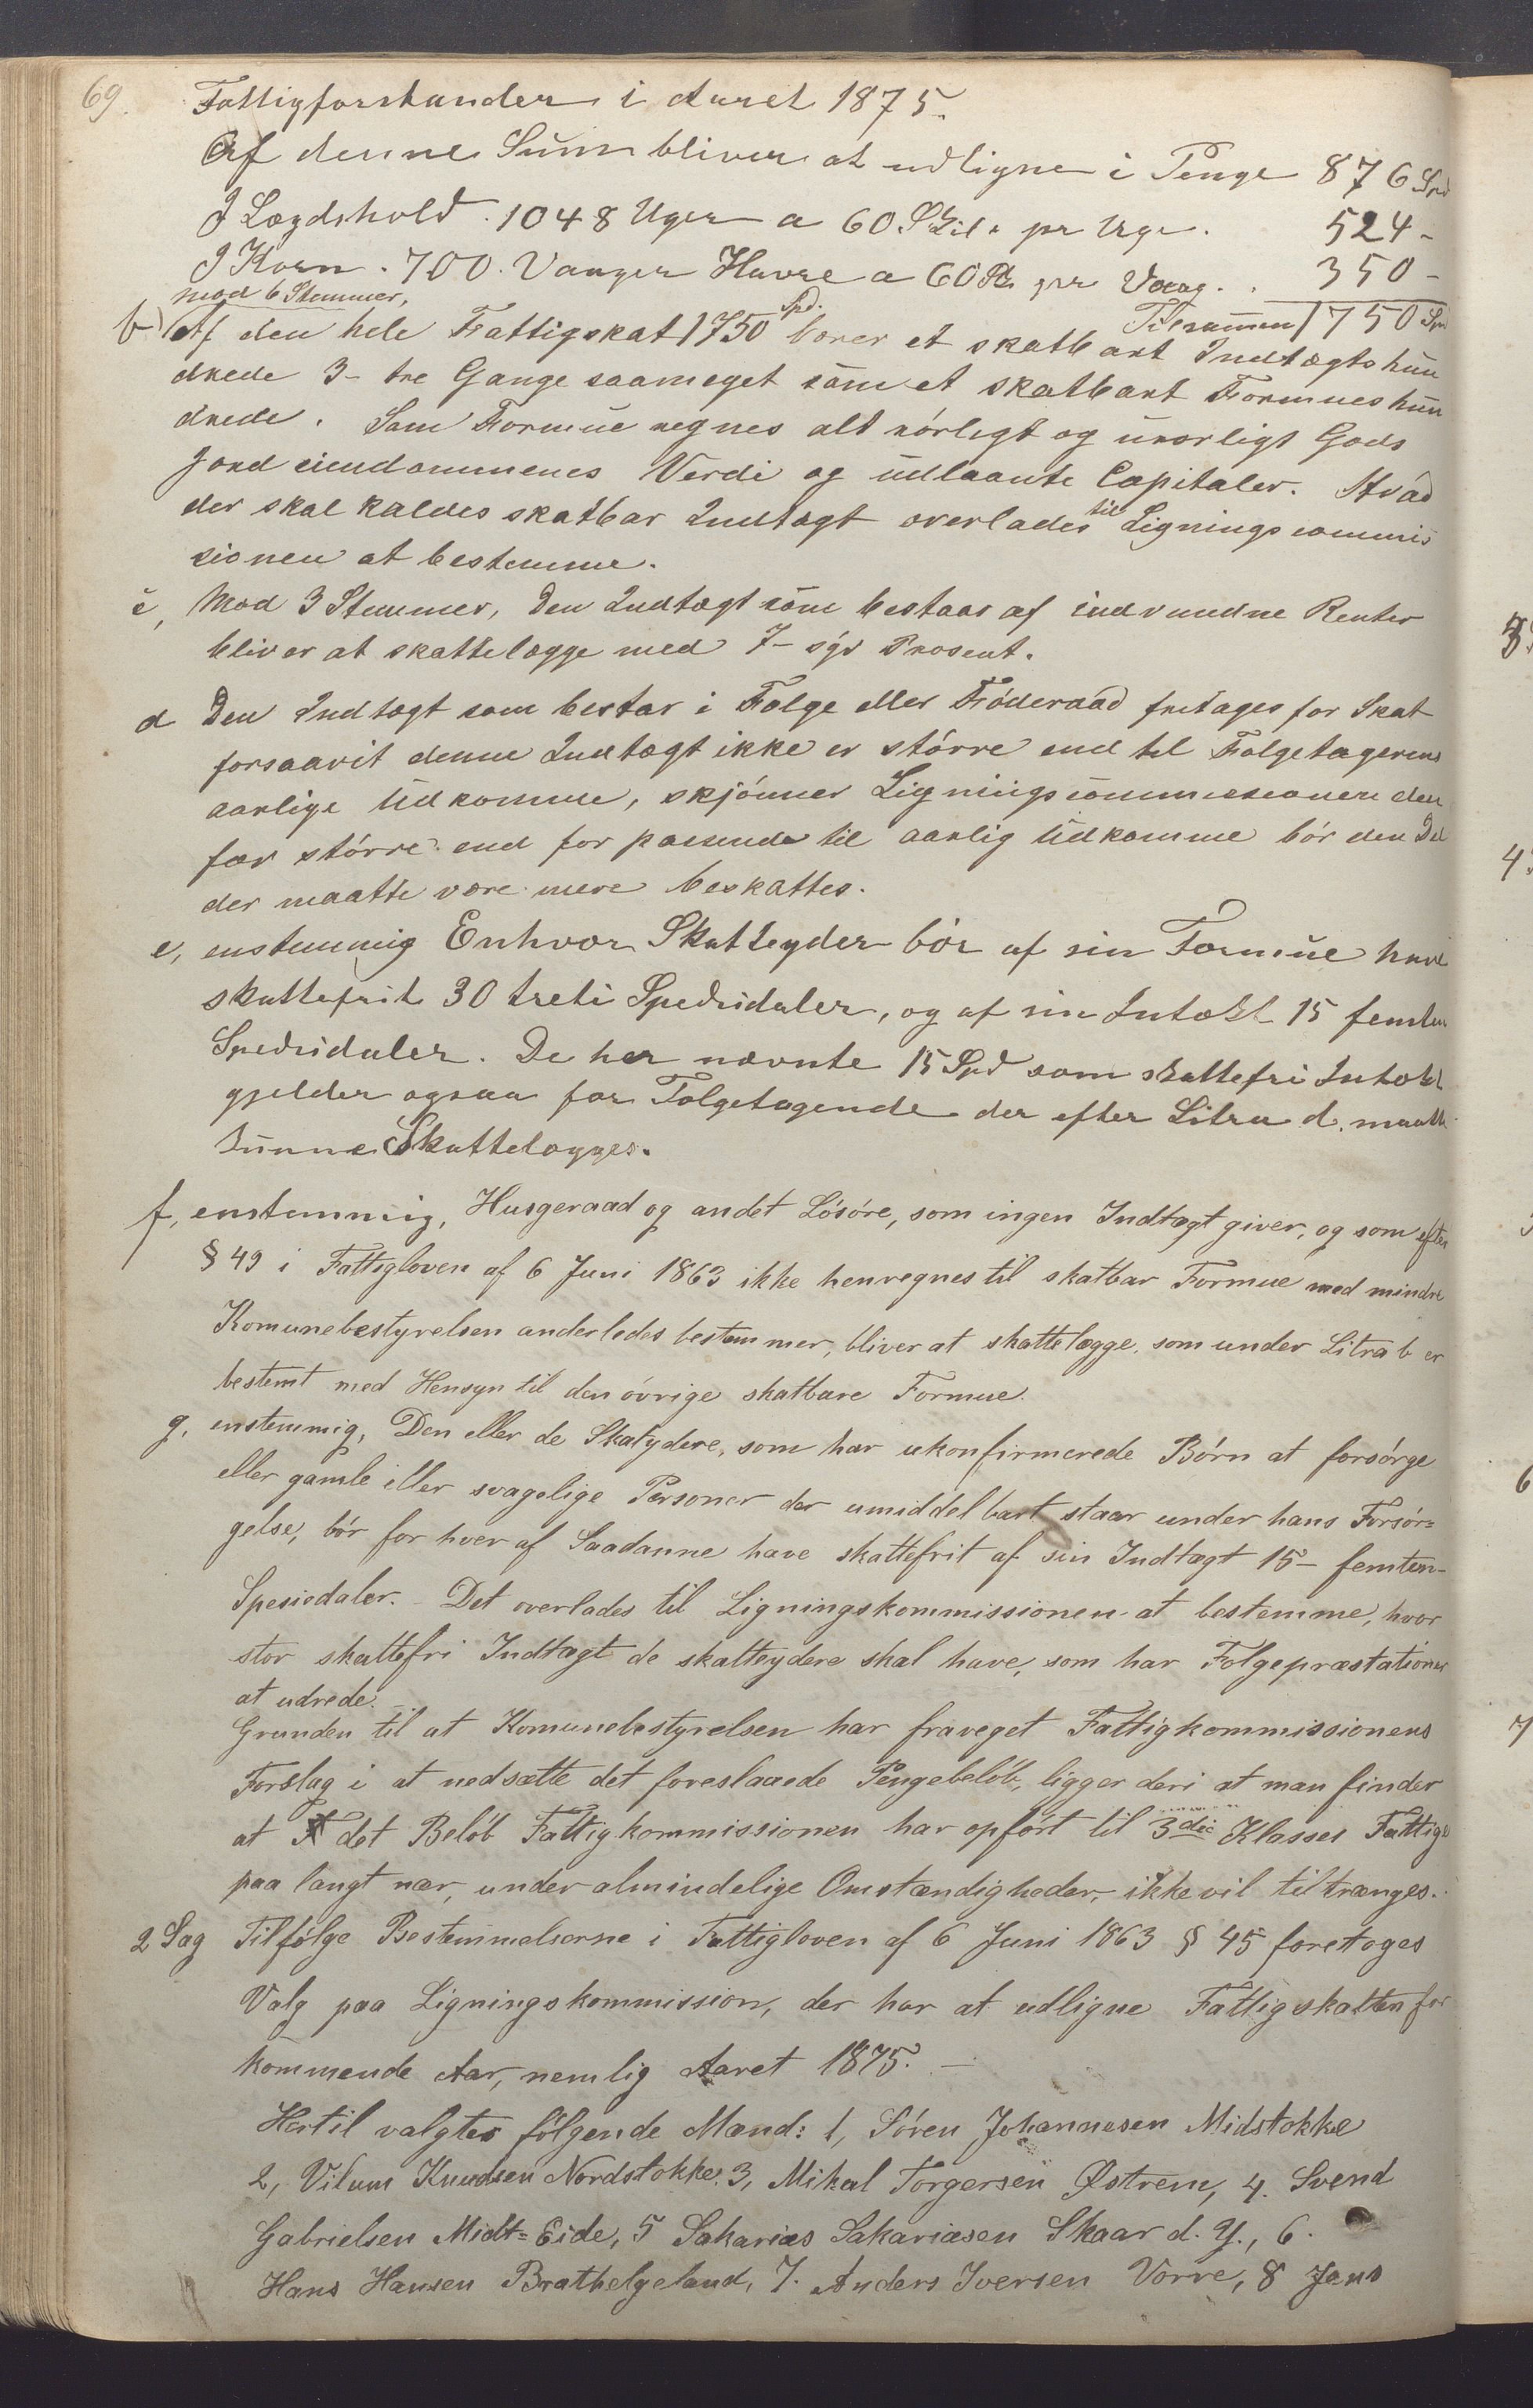 69.
Fattigforstander i Aaret 1875.
Af denne Sum bliver at udligne i Penge 876 Spd
I Lægdshold. 1048 Uger a 60 Skil. pr Uge. 524 -
I Korn. 700. Vaager Havre a 60 Sk pr Vaag. . 350 -
Tilsammen 1750 Spd
mod 6 Stemmer,
b) Af den hele Fattigskat 1750 Spd. bærer et skatbart Indtægtshun
drede 3- tre Gange saameget som et skatbart Formueshun
drede. Som Formue regnes alt rørligt og urørligt Gods
Jordeiendommenes Verdi og udlaante Capitaler. Hvad
der skal kaldes skatbar Indtægt overlades til Ligningscommis
sionen at bestemme.
c, Mod 3 Stemmer, Den Indtægt som bestaar af indvundne Renter
bliver at skattelægge med 7- syv Prosent.
d Den Indtægt som bestar i Følge eller Føderaad fritages for Skat
forsaavit denne Indtægt ikke er större end til Følgetagerens
aarlige Udkomme, skjønner Ligningscommissionen den
for större end for passende til aarlig Udkomme bör den Del
der maatte være mere beskattes.
e, enstemmig Enhver Skatteyder bör af sin Formue have
skattefrit 30 treti Spedsidaler, og af sin Intækt 15 femten
Spedsidaler. De her nævnte 15 Spd som skattefri Intækt
gjelder ogsaa for Følgetagende der efter Litra d. maatte
kunne Skattelægges.
f, enstemmig, Husgeraad og andet Lösöre, som ingen Indtægt giver, og som efter
§ 49 i Fattigloven af 6 Juni 1863 ikke henregnes til skatbar Formue med mindre
Komunebestyrelsen anderledes bestemmer, bliver at skattelægge, som under Litra b er
bestemt med Hensyn til den övrige skatbare Formue.
g, enstemmig, Den eller de Skatydere, som har ukonfirmerede Börn at forsörge
eller gamle eller svagelige Personer der umiddelbart staar under hans Forsör=
gelse, bör for hver af Saadanne have skattefrit af sin Indtægt 15- femten-
Spesiedaler. - Det overlades til Ligningskommissionen at bestemme, hvor
stor skattefri Indtægt de skatteydere skal have, som har Følgepræstationer
at udrede.
Grunden til at Komunebestyrelsen har fraveget Fattigkommissionens
Forslag i at nedsætte det foreslaaede Pengebelöb, ligger deri at man finder
at det Belöb Fattigkommissionen har opfört til 3die Klasses Fattige
paa langt nær, under almindelige Omstændigheder, ikke vil tiltrænges.
2 Sag Tilfölge Bestemmelserne i Fattigloven af 6 Juni 1863 § 45 foretoges
Valg paa Ligningskommission, der har at udligne Fattigskatten for
kommende Aar, nemlig Aaret 1875. —
Hertil valgtes fölgende Mænd: 1, Sören Johannesen Midstokke
2, Vilum Knudsen Nordstokke. 3, Mikal Torgersen Østrem, 4. Svend
Gabrielsen Midt=Eide, 5 Sakarias Sakariasen Skaar d. Y., 6.
Hans Hansen Brathelgeland, 7. Anders Iversen Vorre, 8 Jens